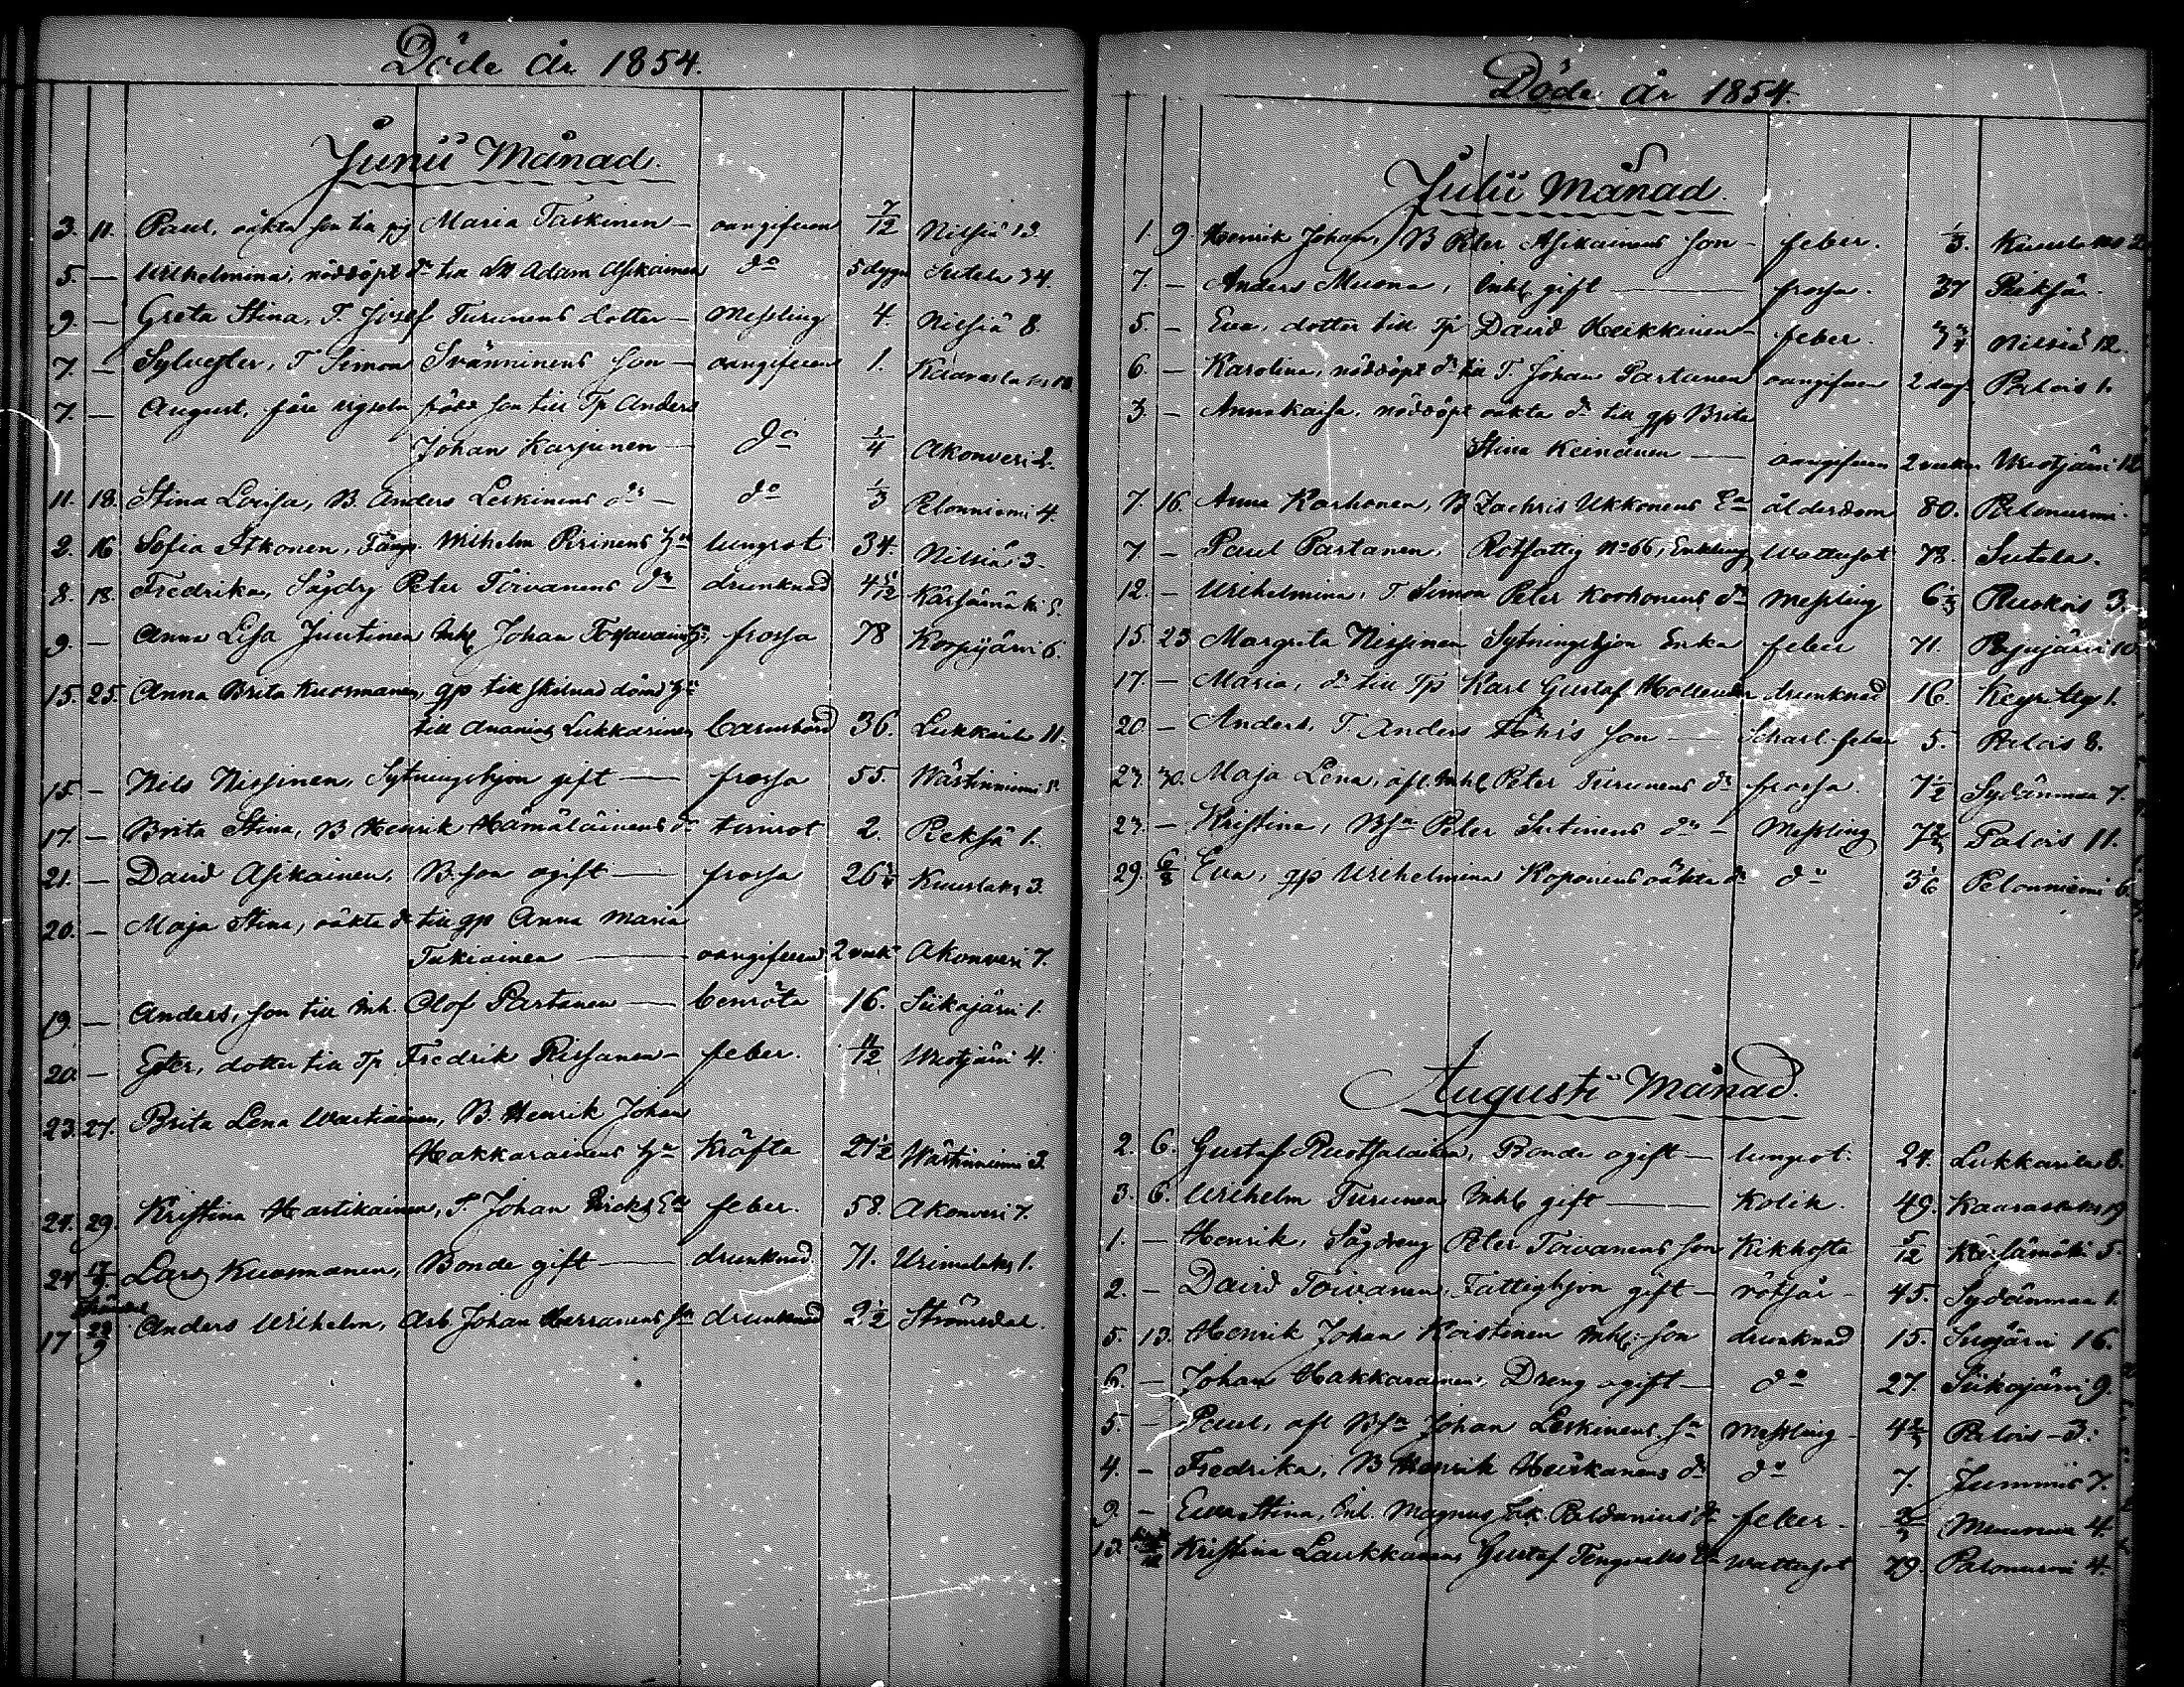 Döde år 1854.
Junii Månad.
3. 11. Paul, oäkta son till pig Maria Taskinen — oangifven 7/12 Nilsiä 13.
5. — Wilhelmina, nöddöpt dr till Adam Asikainen do 5 dygn Sutela 34.
9. — Greta Stina, T. Josef Turunens dotter — Messling 4. Nilsiä 8.
7. — Sylvester, T Simon Svänninens son — oangifven 1. Kaaraslaks
7. — August, före vigseln född son till Tp Anders
Johan Karjunen — do 1/4 Akonveri 2.
11. 18. Stina Lovisa, B. Anders Leskinens dr — do 1/3 Pelonniemi 4.
2. 16. Sofia Itkonen, Wilhelm Pirinens hu lungsot 34. Nilsiä 3.
8. 18. Fredrika, Sågdrg Peter Toivanens dr drunknad Kärsämäki 5.
9. — Anna Lisa Juutinen Inh. Johan frossa 78 Korpijärvi 6.
15. 25. Anna Brita Kuosmanen, gp till skilnad dömd hu
till Ananias Lukkarinen barnsbörd 36. Lukkarila 11.
15. — Nils Nissinen, Sytningshjon gift — frossa 55. Wästinniemi
17. — Brita Stina, B Henrik Hämäläinens dr tvinsot 2. Reksä 1.
21. — David Asikainen, B. son ogift — frossa 26 Kuuslaks 3.
20. — Maja Stina, oäkta dr till gp Anna Maria
Tukiainen — oangifven 2 veck Akonveri 7.
19. — Anders, son till Inh. Olof Partanen — benröta 16. Siikajärvi 1.
20 — Ester, dotter till Tp Fredrik Rissanen — feber. 11/12 Wuotjärvi 4.
23. 27. Brita Lena Wartiainen, B. Henrik Johan
Hakkarainens hu Kräfta 27 1/2 Wästinniemi 3.
27. 29. Kristina Hartikainen, T. Johan feber. 58. Akonveri 7.
24 Lars Kuosmanen, Bonde gift — drunknad. 71. Wrimalaks 1.
17 Anders Wilhelm, Arb. Johan Herranens son drunknad 2 1/2 Strömsdal.
Döde år 1854.
Julii Månad.
1. 9. Henrik Johan, B Peter Asikainens son — feber. 1/3. Kuuslaks
7. — Anders Muona, Inh. gift — frossa. 37 Reksä.
5. — Eva, dotter till Tp David Heikkinen — feber. 3/4 Nilsiä 12.
6. — Karolina, nöddöpt dr till T. Johan Partanen oangifven 2 dag. Palois 1.
3. — Anna Kaisa, nöddöpt oäkta dr till gp Brita
Stina Keinänen — oangifven 2 veckor Wuotjärvi 12
7. 16. Anna Karhonen, B Zachris Ukkonens Ea ålderdom 80. Palonurmi.
7. — Paul Partanen, Rotfattig No 66, Enkling Wattusot 78. Sutela.
12. — Wilhelmina, T Simon Peter Korhonens dr Messling 6 1/3 Ruokis 3.
15. 23 Margreta Nissinen Sytningshjon Enka feber 71. Pajujärvi 10
17. — Maria, dr till Tp Karl Gustaf drunknad 16. Keyrity 1.
20 — Anders, T. Anders son — Scharl. feber 5. Palois 8.
23. 30. Maja Lena, afl. Inh. Peter Turunens dr frossa. 7 1/2 Sydänmaa 7.
27. — Kristina, Bsn Peter Sutinens dr — Messling 7 2/3 Palois 11.
29. 6/8 Eva, gp Wilhelmina Koponens oäkta dr do 3 1/6 Pelonniemi 6.
Augusti Månad.
2. 6. Gustaf Ruotsalainen, Bonde ogift — lungsot. 24. Lukkarila 8.
3. 6. Wilhelm Turunen Inh. gift — Kolik. 49. Kaaraslaks 19
1. — Henrik, Sågdreng Peter Toivanens son Kikhosta 5/12 Kärsämäki 5.
2. — David Toivanen, Fattighjon gift — rötsår — 45. Sydänmaa 1.
5. 13. Henrik Johan Koistinen Inh. son drunknad 15. Suojärvi 16.
6. — Johan Hakkarainen, Dreng ogift — do 27. Siikajärvi 9.
5. — Paul, afl Bsn Johan Leskinens sn Messling — 4 2/3 Palois — 3.
4. — Fredrika, B Henrik Heiskanens dr do 7. Jummis 7.
9. — Eva Stina, Inh. Magnus Paldanius' dr feber — 2/3 Muuruvesi 4.
13. Kristina Laukkanen, Gustaf Tengvalls Ea Wattusot 79. Palonurmi 4.